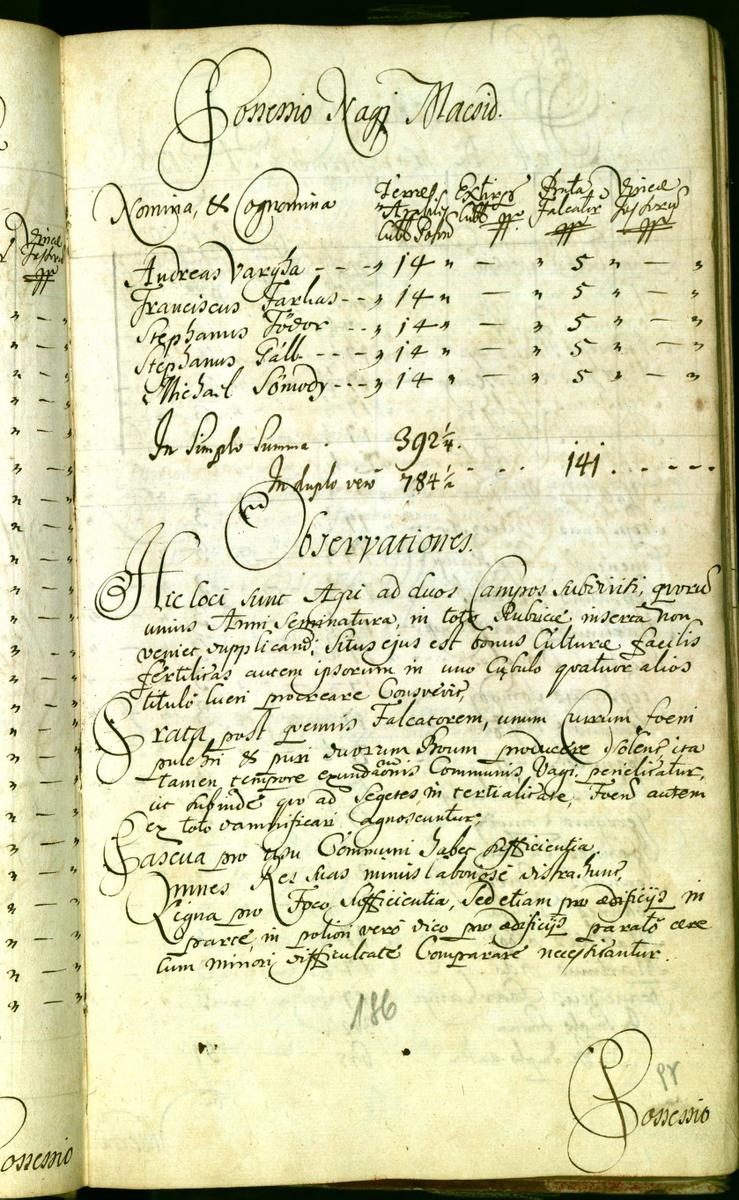 Possessio Nagy Macséd.
Nomina, & Cognomina Terrae Arabilis Cub: Poson Extirp Cub: ppr Prata Falcator ppr Vineae Fossorum ppr
Andreas Vargha - - - " 14 " — " 5 " — "
Franciscus Farkas - - " 14 " — " 5 " — "
Stephanus Födor - - " 14 " — " 5 " — "
Stephanus Gall - - - " 14 " — " 5 " — "
Michael Somody - - - " 14 " — " 5 " — "
In Simplo Summa . 392 1/4. 141 . - - - - -
In duplo vero 784 1/2
Observationes.
Hic loci sunt Agri ad duos Campos subdivisi, quorum
unius Anni Seminatura, in toto Rubricae inserta non
veniet supplicandi; Situs ejus est bonus Culturae facilis
fertilitas autem ipsorum in uno Cubulo quatuor alios
titulo lucri procreare Consvevit,
Prata post quemvis Falcatorem, unum Currum foeni
pulchri & puri duorum Boum producere solent, ita
tamen tempore exundaonis Communis Vagi periclitatur,
ut subinde quo ad Segetes, in tertialitate, Foenum autem
ex toto damnificari agnoscuntur;
Pascua pro usu Communi habet sufficientia.
Omnes Res suas minus laboriose distrahunt,
Ligna pro Foco sufficientia, sed etiam pro aedificijs in
parte, in potiori vero dico pro aedificijs parato aere
cum minori difficultate Comparare necessitantur.
186
Possessio